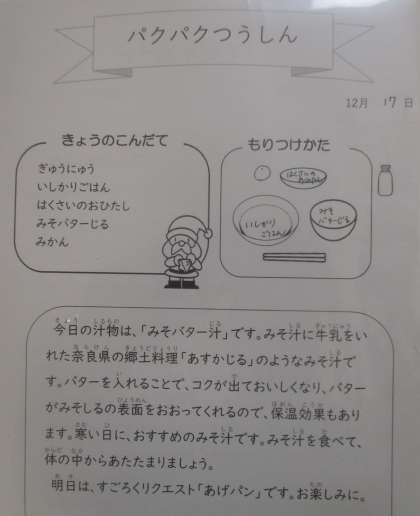 パクパクつうしん
12月 17日
きょうのこんだて
ぎゅうにゅう
いしかりごはん
はくさいのおひたし
みそバターじる
みかん
もりつけかた
はくさいの
おひたし
いしかり
ごはん
みそ
バターじる
今日の汁物は、「みそバター汁」です。みそ汁に牛乳をい
れた奈良県の郷土料理「あすかじる」のようなみそ汁で
す。バターを入れることで、コクが出ておいしくなり、バター
がみそしるの表面をおおってくれるので、保温効果もあり
ます。寒い日に、おすすめのみそ汁です。みそ汁を食べて、
体の中からあたたまりましょう。
明日は、すごろくリクエスト「あげパン」です。お楽しみに。